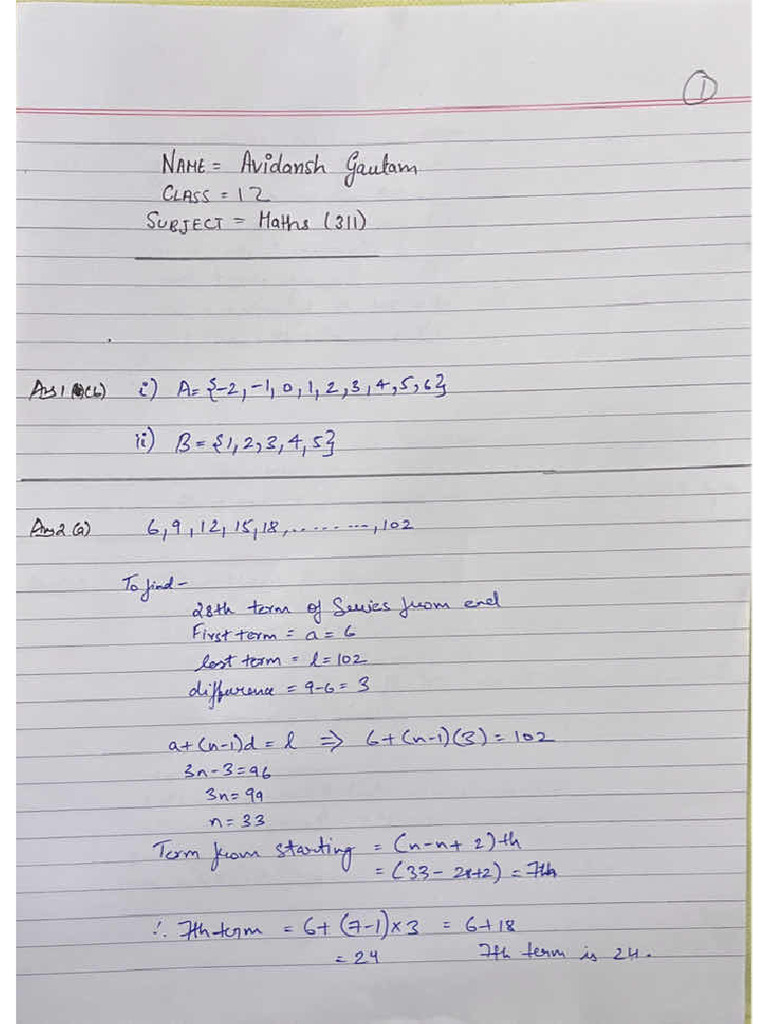 1
NAME = Avidansh Gautam
CLASS = 12
SUBJECT = Maths (311)
Ans1 (b) i) A= {-2,-1,0,1,2,3,4,5,6}
ii) B = {1,2,3,4,5}
Ans2 (a) 6,9,12,15,18,.........,102
To find-
28th term of Series from end
First term = a = 6
last term = l = 102
difference = 9-6 = 3
a+(n-1)d = l ⇒ 6+(n-1)(3) = 102
3n-3=96
3n=99
n=33
Term from starting = (n-n+2)th
= (33-28+2) = 7th
∴ 7th term = 6+(7-1)×3 = 6+18
= 24 7th term is 24.